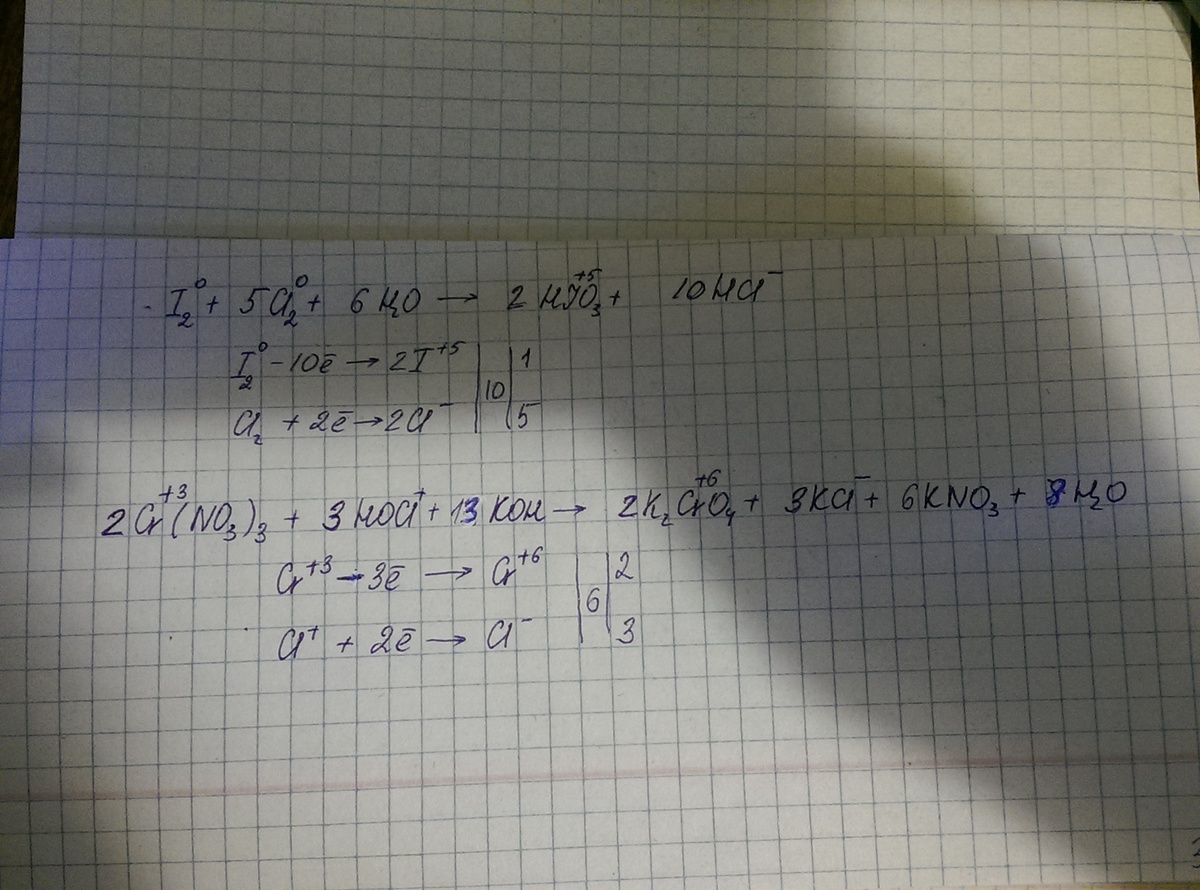 I₂⁰ + 5Cl₂⁰ + 6H₂O → 2HI⁺⁵O₃ + 10HCl⁻
I₂⁰ - 10ē → 2I⁺⁵ | 10 | 1
Cl₂ + 2ē → 2Cl⁻ | | 5
2Cr⁺³(NO₃)₃ + 3HOCl⁺ + 13KOH → 2K₂Cr⁺⁶O₄ + 3KCl⁻ + 6KNO₃ + 8H₂O
Cr⁺³ - 3ē → Cr⁺⁶ | 6 | 2
Cl⁺ + 2ē → Cl⁻ | | 3